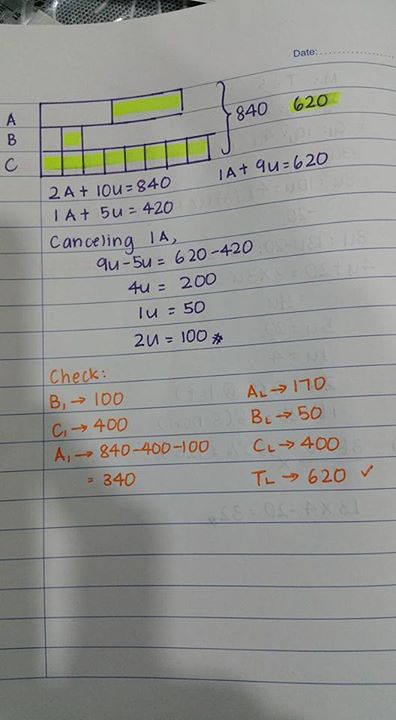 Date:
A
B
C
840 620
2A + 10u = 840
1A + 9u = 620
1A + 5u = 420
Canceling 1A,
9u - 5u = 620 - 420
4u = 200
1u = 50
2u = 100 *
Check:
B₁ → 100
C₁ → 400
A₁ → 840 - 400 - 100
= 340
AL → 170
BL → 50
CL → 400
TL → 620 ✓